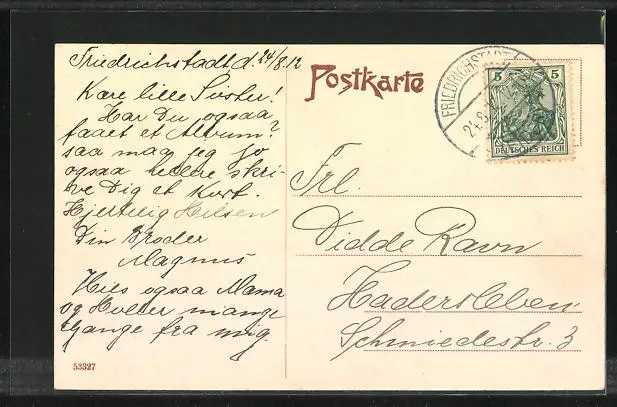 Friedrichstadt d. 24/8.12
Kære lille Søster!
Har Du ogsaa
faaet et Album?
saa maa jeg jo
ogsaa hellere skri-
ve Dig et Kort.
Hjertelig Hilsen
Din Broder
Magnus
Hils ogsaa Mama
og Holler mange
Gange fra mig.
53327
Postkarte
FRIEDRICHSTADT
24.8.
5 5
DEUTSCHES REICH
Frl.
Didde Ravn
Hadersleben
Schmiedestr. 3